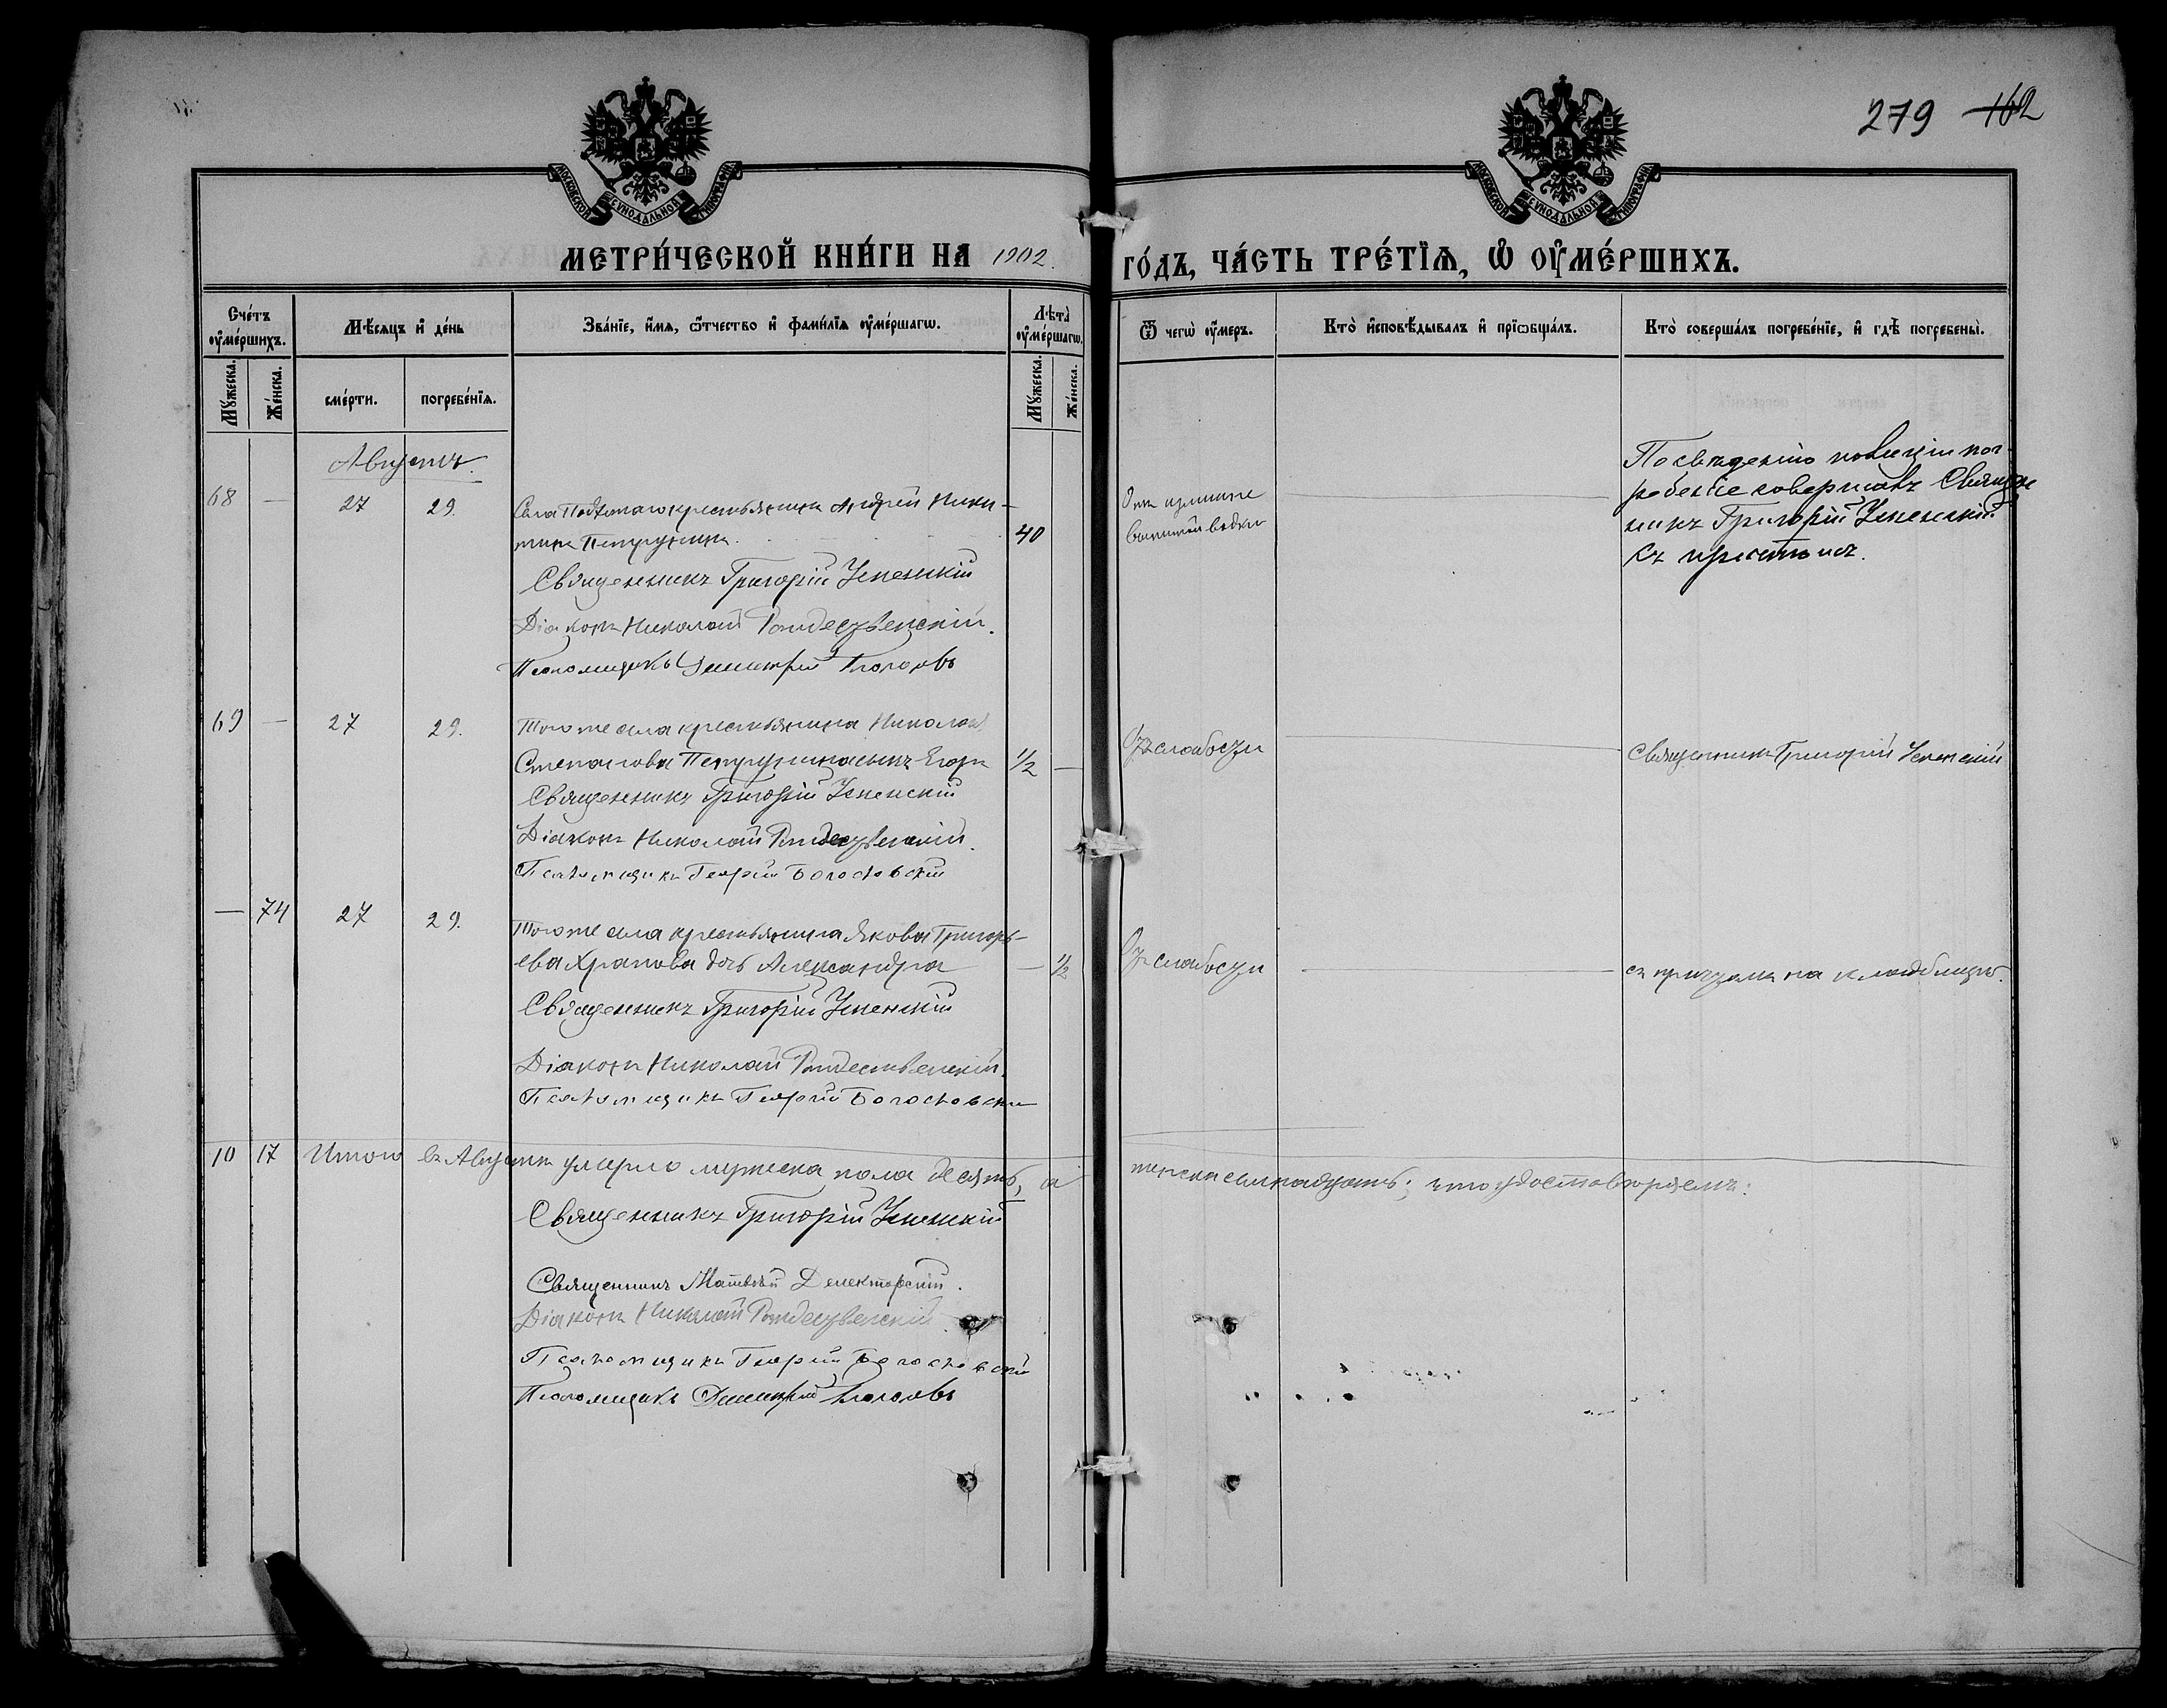 279 162
МОСКОВСКОЙ СѴНОДАЛЬНОЙ ТИПОГРАФІИ
МОСКОВСКОЙ СѴНОДАЛЬНОЙ ТИПОГРАФІИ
МЕТРИ́ЧЕСКОЙ КНИ́ГИ НА 1902 ГО́ДЪ, ЧА́СТЬ ТРЕ́ТЇѦ, Ѡ҆ ОУ҆МЕ́РШИХЪ.
Сче́тъ оу҆ме́ршихъ.
Мꙋ́жеска.
Же́нска.
Мѣ́сяцъ и҆ де́нь
сме́рти.
погребе́нїѧ.
Зва́нїе, и҆́мѧ, ѻ҆́тчество и҆ фами́лїѧ оу҆ме́ршагѡ.
Лѣ́та̀ оу҆ме́ршагѡ.
Мꙋ́жеска.
Же́нска.
Ѿ чегѡ̀ оу҆́меръ.
Кто̀ и҆сповѣ́дывалъ и҆ прїѡбща́лъ.
Кто̀ соверша́лъ погребе́нїе, и҆ гдѣ̀ погребены̀.
Августъ.
68 — 27 29.
Села крестьянинъ Андрей Ники-
тинъ Петрунинъ. 40
Священникъ Григорій Успенскій
Діаконъ Николай Рождественскій.
Псаломщикъ Димитрій
Отъ излишне
выпитой водки
По сведенію полиціи пог-
ребеніе совершалъ Священ
никъ Григорій Успенскій
съ причтомъ.
69 — 27 29.
Того же села крестьянина Николая
Степанова Петрунина сынъ Егоръ 1/2 —
Священникъ Григорій Успенскій
Діаконъ Николай Рождественскій.
Псаломщикъ Георгій Богословскій
Отъ слабости
Священникъ Григорій Успенскій
— 74 27 29.
Того же села крестьянина Якова Григорь-
ева Храпова дочь Александра — 1/2
Священникъ Григорій Успенскій
Діаконъ Николай Рождественскій.
Псаломщикъ Георгій Богословскій
Отъ слабости
съ причтомъ на кладбищѣ.
10 17 Итого въ Августѣ умерло мужеска пола десять, а женска семнадцать; что удостовѣряемъ:
Священникъ Григорій Успенскій
Священникъ Матвѣй Делекторскій.
Діаконъ Николай Рождественскій.
Псаломщикъ Георгій Богословскій
Псаломщикъ Димитрій